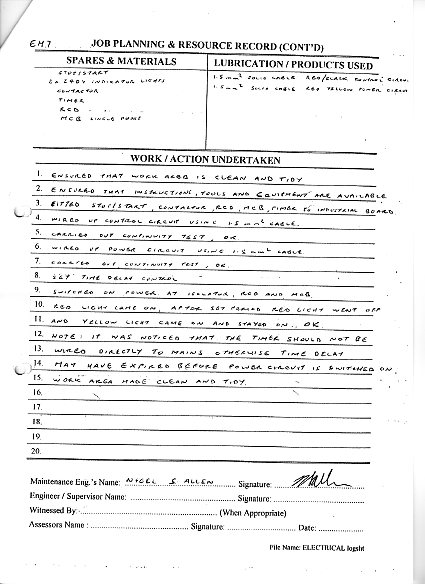 EM.7 JOB PLANNING & RESOURCE RECORD (CONT'D)
SPARES & MATERIALS LUBRICATION / PRODUCTS USED
STOP/START 1.5 mm² SOLID CABLE RED/BLACK CONTROL CIRCUI
2 x 240V INDICATOR LIGHTS 1.5 mm² SOLID CABLE RED YELLOW POWER CIRCUI
CONTACTOR
TIMER
RCD
MCB SINGLE PHASE
WORK / ACTION UNDERTAKEN
1. ENSURED THAT WORK AREA IS CLEAN AND TIDY
2. ENSURED THAT INSTRUCTIONS, TOOLS AND EQUIPMENT ARE AVAILABLE
3. FITTED STOP/START, CONTACTOR, RCD, MCB, TIMER TO INDUSTRIAL BOARD
4. WIRED UP CONTROL CIRCUIT USING 1.5 mm² CABLE.
5. CARRIED OUT CONTINUITY TEST, OK.
6. WIRED UP POWER CIRCUIT USING 1.5 mm² CABLE.
7. CARRIED OUT CONTINUITY TEST, OK.
8. SET TIME DELAY CONTROL
9. SWITCHED ON POWER AT ISOLATOR, RCD AND MCB.
10. RED LIGHT CAME ON, AFTER SET PERIOD RED LIGHT WENT OFF
11. AND YELLOW LIGHT CAME ON AND STAYED ON, OK
12. NOTE: IT WAS NOTICED THAT THE TIMER SHOULD NOT BE
13. WIRED DIRECTLY TO MAINS OTHERWISE TIME DELAY
14. MAY HAVE EXPIRED BEFORE POWER CIRCUIT IS SWITCHED ON.
15. WORK AREA MADE CLEAN AND TIDY.
16.
17.
18.
19.
20.
Maintenance Eng.'s Name: NIGEL S ALLEN Signature:
Engineer / Supervisor Name: Signature:
Witnessed By: (When Appropriate)
Assessors Name: Signature: Date:
File Name: ELECTRICAL logsht